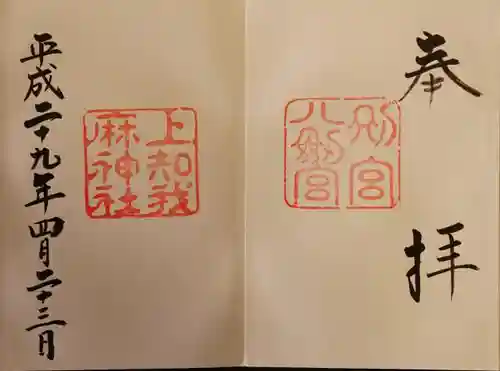 奉拝
別宮
八剣宮
上知我
麻神社
平成二十九年四月二十三日